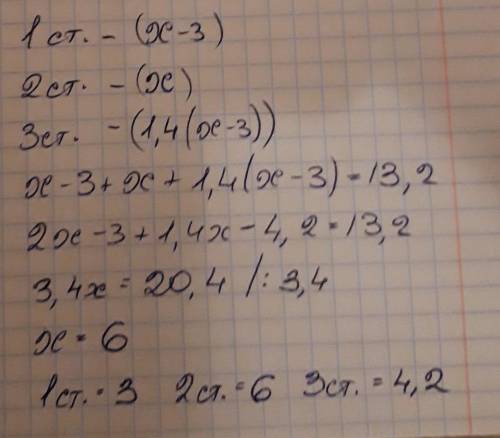 1 ст. - (х-3)
2ст. - (х)
3ст. - (1,4(х-3))
х-3+х+1,4(х-3)=13,2
2х-3+1,4х-4,2=13,2
3,4х=20,4 /:3,4
х=6
1ст.=3 2ст.=6 3ст.=4,2